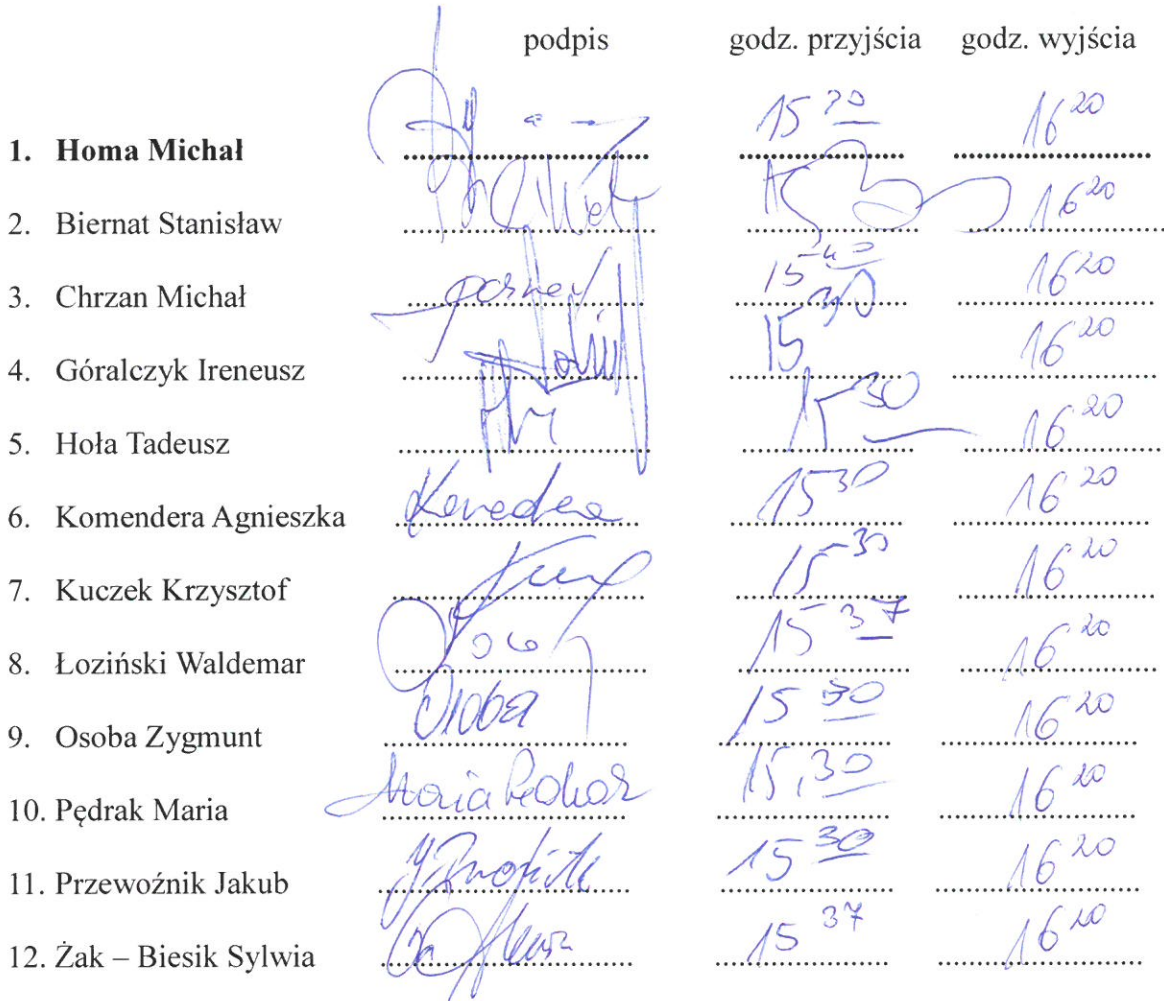 podpis godz. przyjścia godz. wyjścia
1. Homa Michał 15 30 16 20
2. Biernat Stanisław 15 30 16 20
3. Chrzan Michał 15 40 16 20
4. Góralczyk Ireneusz 15 30 16 20
5. Hoła Tadeusz 15 30 16 20
6. Komendera Agnieszka 15 30 16 20
7. Kuczek Krzysztof 15 30 16 20
8. Łoziński Waldemar 15 37 16 20
9. Osoba Zygmunt Osoba 15 30 16 20
10. Pędrak Maria Maria Pędrak 15,30 16 20
11. Przewoźnik Jakub 15 30 16 20
12. Żak – Biesik Sylwia 15 37 16 20